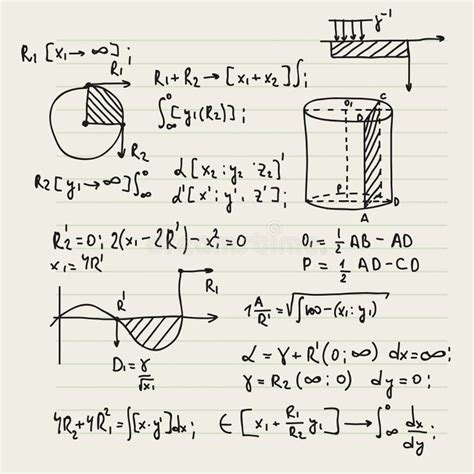 R₁ [x₁ → ∞] ;
R₁
R₁ + R₂ → [x₁ + x₂]∫;
∫₀^∞ [y₁(R₂)] ;
R₂
R₂ [y₁ → ∞]∫
α[x₂ : y₂ : z₂]'
α'[x' : y', z'] ;
γ⁻¹
O₁
C
D
P
A
D
R₂' = 0; 2(x₁ - 2R') - x₁² = 0
x₁ = 4R'
O₁ = 1/2 AB - AD
P = 1/2 AD - CD
R'
R₁
D₁ = γ/√x₁
1A/R' = √∫100 - (x₁ : y₁)
α = γ + R'(0; ∞) dx = ∞;
γ = R₂(∞; 0) dy = 0;
4R₂ + 4R₁² = ∫[x · y']dx;
∈ [x₁ + R₁/R₂ y₁] → ∫ dx/dy ;